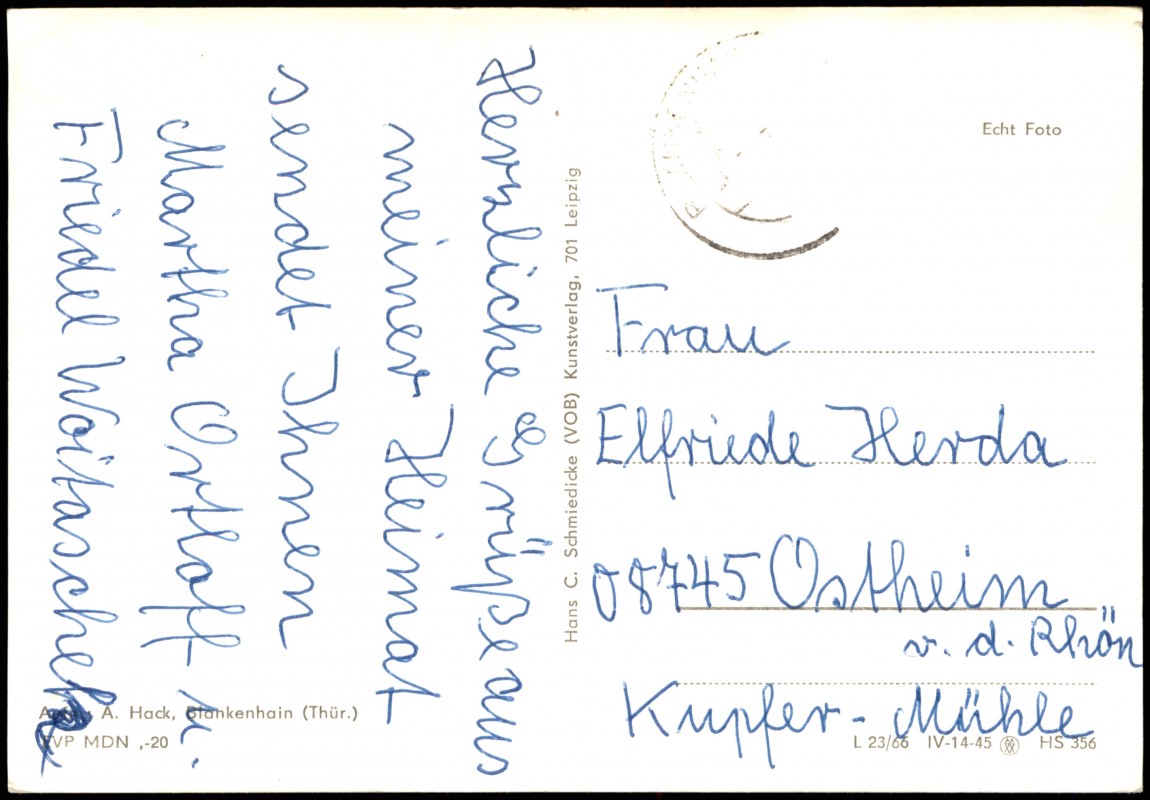 Herzliche Grüße aus
meiner Heimat
sendet Ihnen
Martha Ortloff u.
Friedel Woitaschek
A. Hack, Blankenhain (Thür.)
EVP MDN ,-20
Hans C. Schmiedicke (VOB) Kunstverlag, 701 Leipzig
Echt Foto
Frau
Elfriede Herda
08745 Ostheim
v. d. Rhön
Kupfer-Mühle
L 23/66 IV-14-45 HS 356